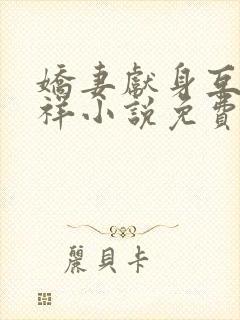 嬌妻獻身互
祥小說免費
麗貝卡